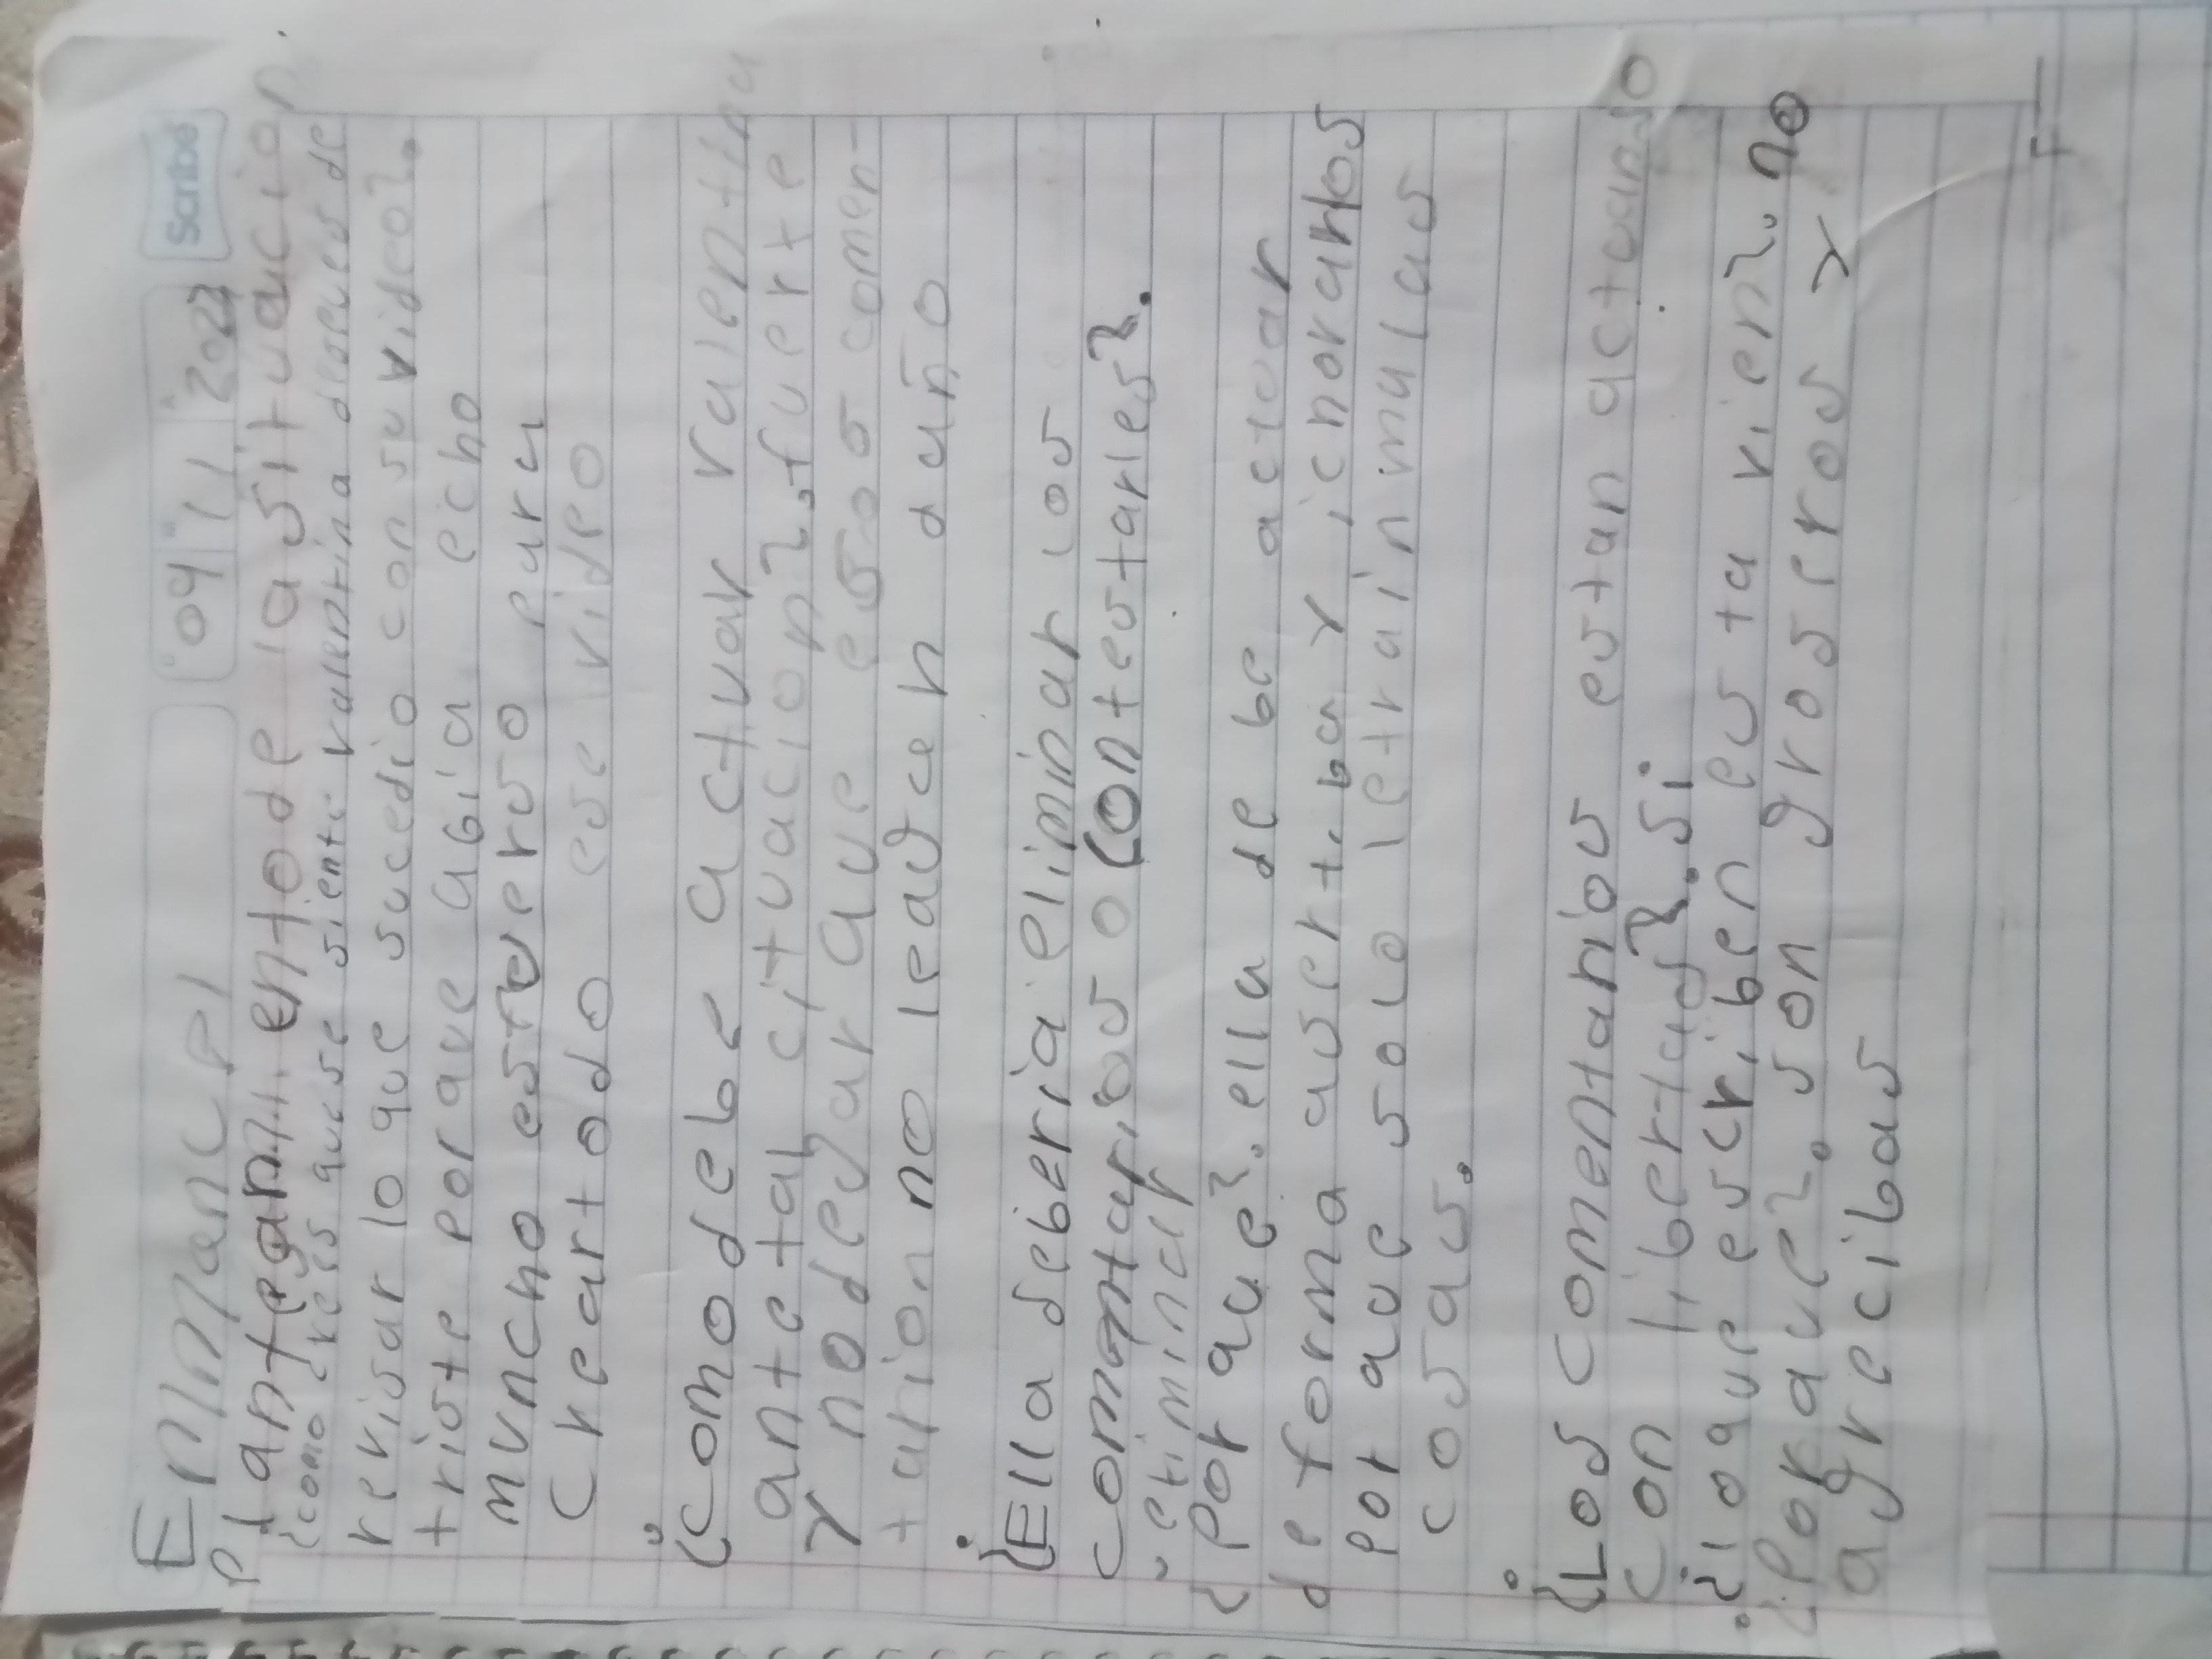 Emmanuel
04 11 2022 Scribe
Planteamiento de la situacion
¿como crees que se siente valentina despues de
revisar lo que sucedio con su video?.
triste porque abia echo
muncho esfuerso para
crear todo ese video
¿como debe actuar valentina
ante tal cituacion?. fuerte
y no dejar que esos comen-
tarion no leagen daño
¿Ella deberia eliminar los
comantarios o contestarles?.
eliminar
¿por que?. ella de be actuar
de forma asertiba y ichorarlos
por que solo le train malas
cosas.
¿Los comentarios estan actuando
con libertad?. si
¿lo que escriben esta vien?. no
¿Porque?. son groseros y
agrecibas